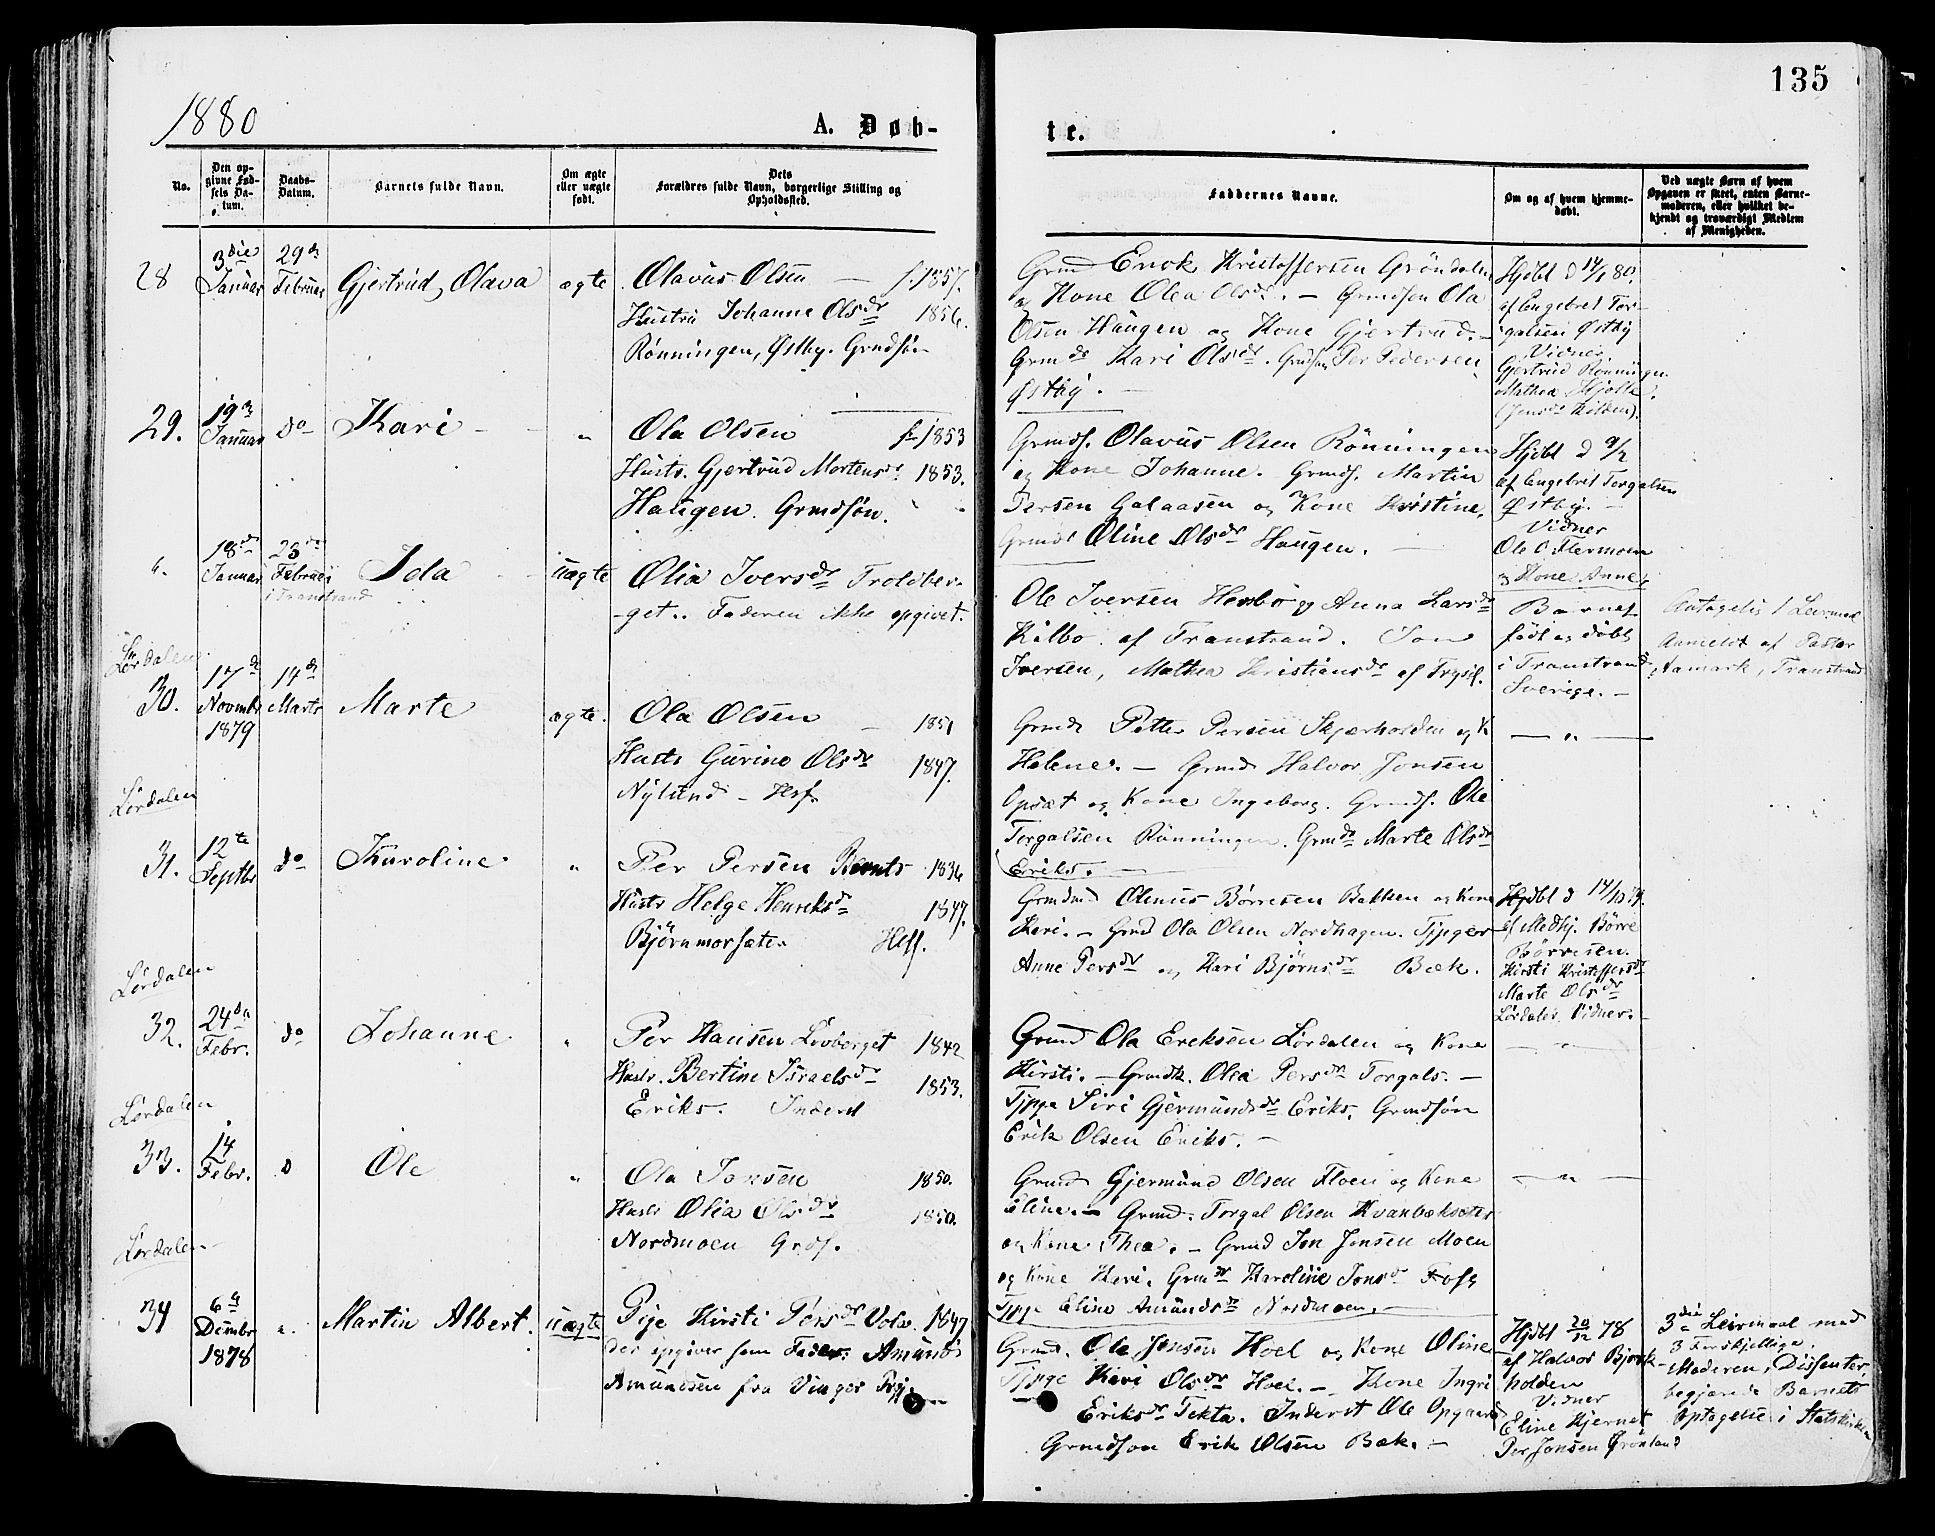 135
1880
A. Døb-
te.
No.
Den op-
givne Fød-
sels Da-
tum.
Daabs-
Datum.
Barnets fulde Navn.
Om ægte
eller uægte
født.
Dets
Forældres fulde Navn, borgerlige Stilling og
Opholdssted.
Faddernes Navne.
Om og af hvem hjemme-
døbt.
Ved uægte Børn af hvem
Opgaven er skeet, enten Barne-
moderen, eller hvilket be-
kjendt og troværdigt Medlem
af Menigheden.
28
3die
Januar
29de
Februar
Gjertrud, Olava
ægte
Olavus Olsen — f. 1857.
Hustru Johanne Olsdr 1856.
Rønningen, Østby. Grndsøn
Grmd Erick Kristoffersen Gröndalen
og Kone Olea Olsdr. — Grmdsøn Ola
Olsen Haugen og Kone Gjertrud. —
Grmdr Kari Olsdr. Per Pedersen
Østby. —
Hjdbt d 14/1 80.
af Engebret Tor-
galsen Østby
Vidner
Gjertrud Rönningen
Mathea
29.
19de
Januar
do
Kari
"
Ola Olsen f. 1853
Hustr. Gjertrud Mortensdr 1853.
Haugen. Grmdsøn.
Grmds. Olavus Olsen Rönningen
og Kone Johanne. Grmds. Martin
Persen Galaasen og Kone Kristine,
Oline Olsdr Haugen. —
Hjdbt d 9/2
af Engebret Torgalsen
Østby. —
Vidner
Ole O. Flermoen
og Kone Anne
"
18de
Januar
23de
Februar
i Transtrand
Ida
uægte
Olia Iversdr Troldber-
get. Faderen ikke opgivet.
Ole Iversen Hernbo og Anna Larsdr
Kilbo af Transtrand. Jon
Iversen, Mathea Kristiansdr af Trysil.
Barnet
født og døbt
i Transtrand,
Sverige. —
Antagelig 1 Leirmaal
Anmeldt af Pastor
Aamark, Transtrand
Lørdalen
30.
17de
Novmbr
1879
14de
Marts
Marte
ægte.
Ola Olsen — 1851
Hustr Gurine Olsdr 1847.
Nylund — Hsf.
Grmd Petter Persen Skjærholden og K
Helene. — Grmd Halvor Jonsen
Opsæt og Kone Ingeborg. Grmds. Ole
Torgalsen Rønningen. Grmdr Marte Olsdr
Eriks. —
— " —
Lørdalen
31.
12te
Septbr
do
Karoline
"
Per Persen Bernts 1836
Hustr Helge Henriksdr 1847.
Bjørnmorsæte. Hsf.
Grmdmd Olenus Børresen Bakken og Kone
Kari. — Grmd Ola Olsen Nordhagen. Tjpiger
Anne Persdr og Kari Bjørnsdr Bæk.
Hjdbt d 14/10 79.
af Medhj. Børre
Børresen.
Kirsti Kristoffersdr
Marte Olsdr
Lørdalen Vidner. —
Lørdalen
32.
24de
Febr.
do
Johanne
"
Per Hansen Lövberget 1842
Hustr. Bertine Israelsdr 1853.
Eriks. Inderst
Grmd Ola Eriksen Lørdalen og Kone
Kirsti. — Grmdk. Olea Persdr Torgals. —
Tjpge Siri Gjermundsdr Eriks. Grmdsøn
Erik Olsen Eriks. —
— " —
Lørdalen
33.
14
Febr.
d
Ole
"
Ola Jonsen 1850.
Hustr Olia Olsdr 1850.
Nordmoen Grds.
Grmd Gjermund Olsen Floen og Kone
Eline. — Grmd. Torgal Olsen Kvanbæksæter
og Kone Thea. — Grmd Jon Jonsen Moen
og Kone Kari. Grmdr Karoline Jonsdr Foss
Tjpge Eline Amundsdr Nordmoen. —
— " —
Lørdalen
34
6te
Dcmbr
1878
"
Martin Albert.
uægte
Pige Kirsti Persdr Vola. 1847
der opgiver som Fader Amund
Amundsen fra Vinger Prgj. —
Grmd. Ole Jensen Hoel og Kone Oline
Tjpge Kari Olsdr Hoel. — Kone Ingri
Eriksdr Tekta. Inderst Ole Opgaard
Grmdsøn Erik Olsen Bæk. —
Hjdbt 20/12 78
af Halvor Bjørk-
holden
Vidner
Eline Kjernet
Per Jonsen Grönland
3die Leirmaal med
3 Forskjellige.
Moderen, Dissenter,
begjærede Barnets
Optagelse i Statskirken